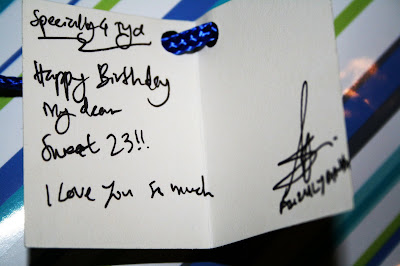 Specially 4 Tyd
Happy Birthday
My dear
Sweet 23!!
I Love You So much